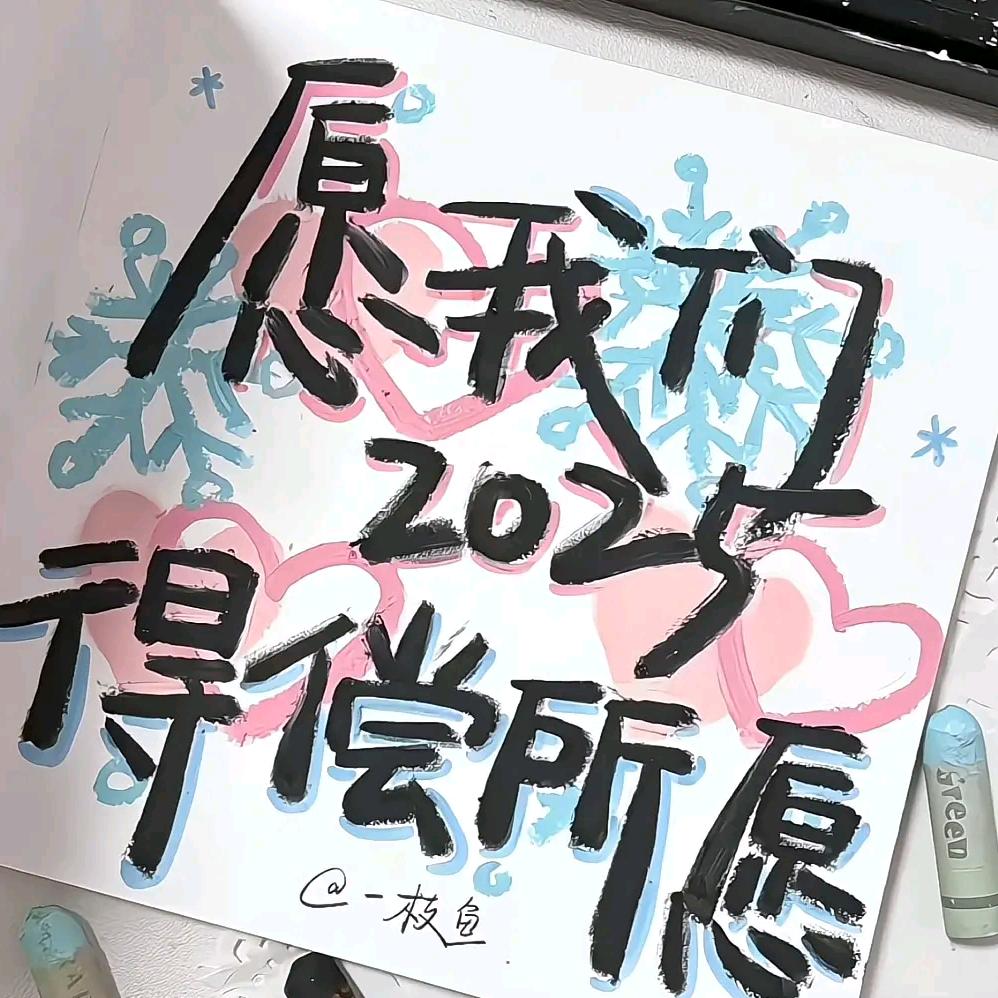 愿我们
2025
得偿所愿
@一枝鱼
Green